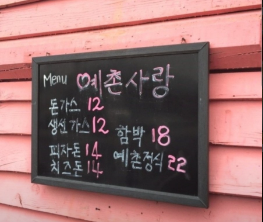 Menu ♡예촌사랑
돈가스 12
생선가스 12
피자돈 14
치즈돈 14
함박 18
예촌정식 22